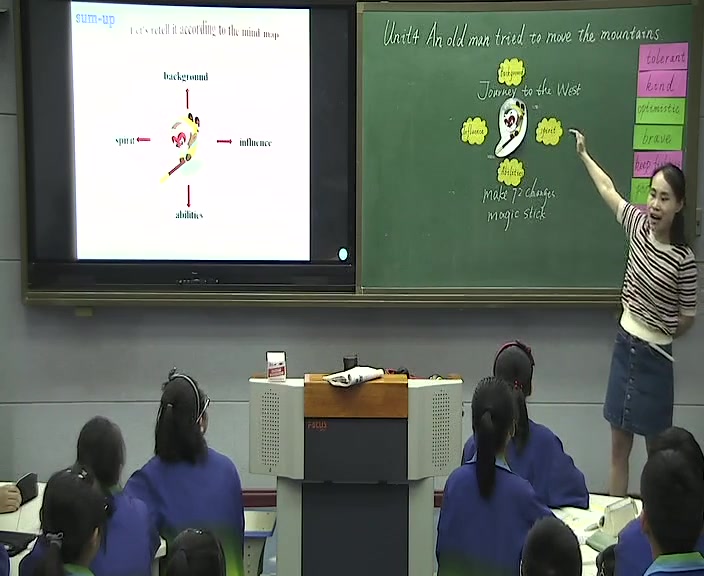 sum-up
Let's retell it according to the mind map
background
spirit
influence
abilities
Unit4 An old man tried to move the mountains
background
Journey to the West
influence
spirit
abilities
make 72 changes
magic stick
tolerant
kind
optimistic
brave
FOCUS